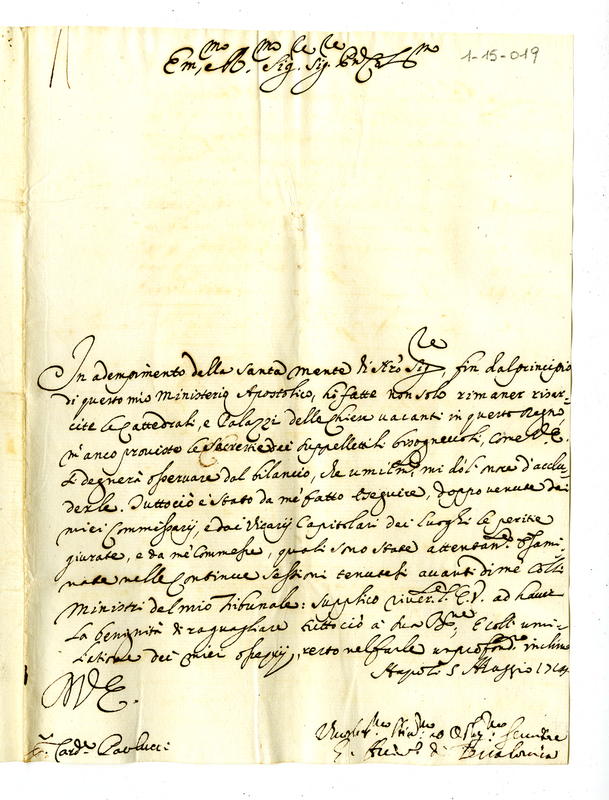 1-15-019
Em.mo e R.mo Sig.re Sig.re
In adempimento della santa mente di N'ro Sig.re fin dal principio
di questo mio Ministerio Apostolico, hò fatte non solo rimaner risar-
cite le Cattedrali, e Palazzi delle Chiese vacanti in questo Regno,
m'anco proviste le Secrestie dei suppellettili bisognevoli, come V.E.
si degnerà osservare dal bilancio, che umilm.te mi dò l'onore d'acclu-
derle. Tuttociò è stato da mè fatto eseguire, doppo venute dei
miei Commissarij, e dai Vicarij Capitolari dei luoghi le perizie
giurate, e da mè Commesse, quali sono state attentam.te esami-
nate nelle continue sessioni tenutesi avanti di mè colli
Ministri del mio Tribunale: supplico river.te l'E.V. ad haver
la benignità di raguagliare tuttociò à Sua B.ne, e colli umi-
liationi dei miei ossequij, resto nel farle un profond.mo inchino
Napoli 5 Maggio 1714
D V E.
S.r Card.e Paolucci